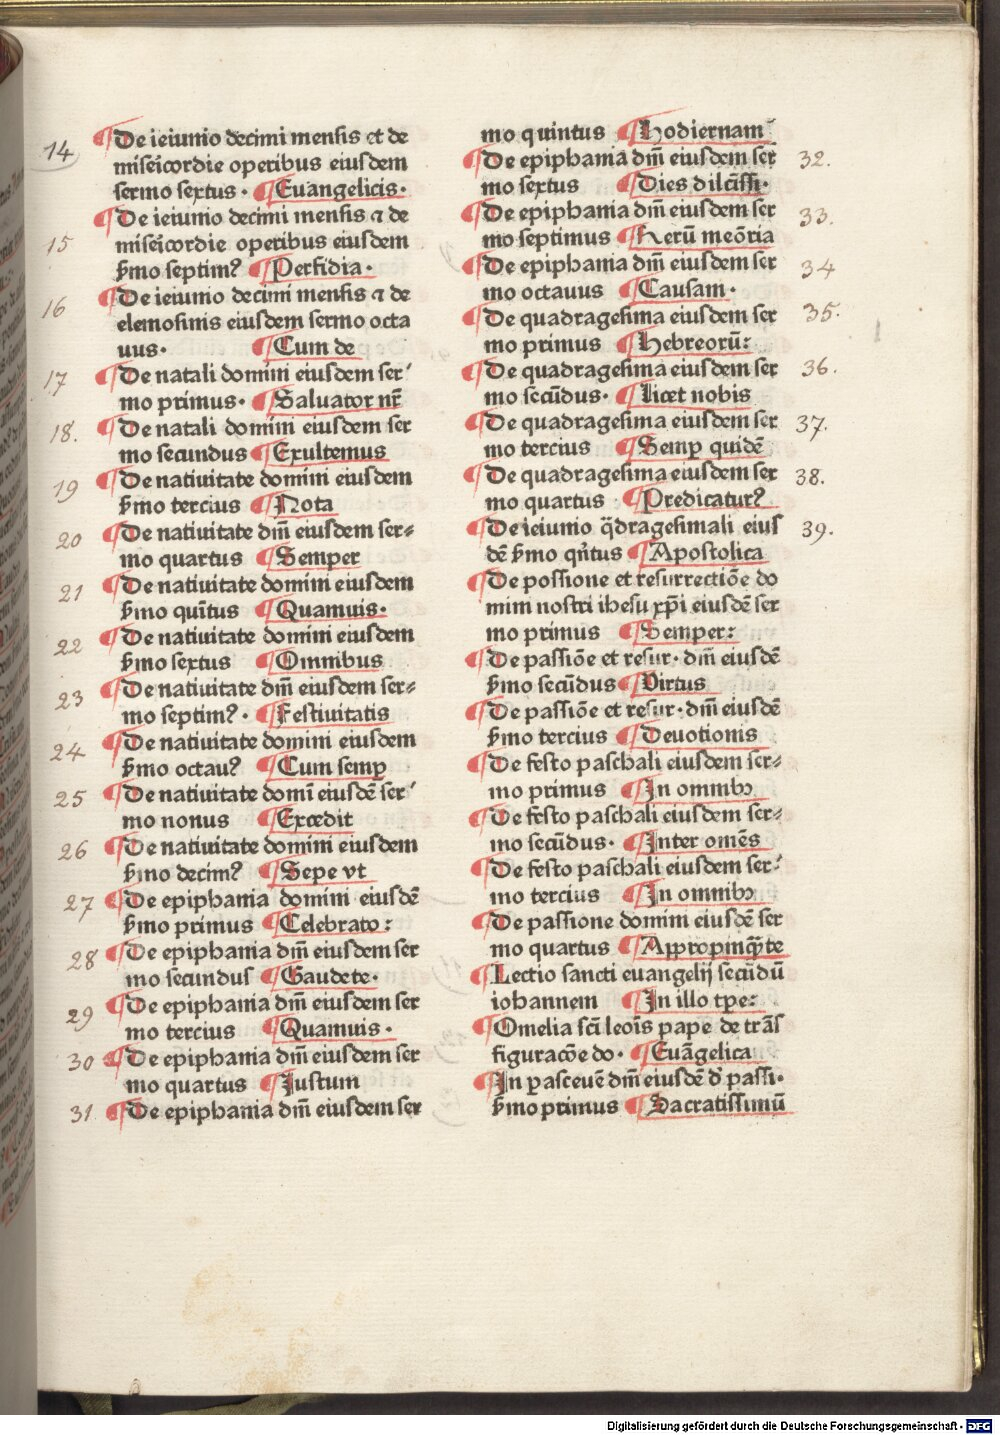 14
De ieiunio decimi mensis et de
misericordie operibus eiusdem
sermo sextus · Euangelicis ·
De ieiunio decimi mensis ⁊ de
15
misericordie operibus eiusdem
ẜmo septimꝰ Perfidia ·
De ieiunio decimi mensis ⁊ de
16
elemosinis eiusdem sermo octa
uus · Cum de
17
De natali domini eiusdem ser
mo primus · Saluator nr̄
18.
De natali domini eiusdem ser
mo secundus Exultemus
19
De natiuitate domini eiusdem
ẜmo tercius Nota
20
De natiuitate dm̄ eiusdem ser⸗
mo quartus Semper
21
De natiuitate domini eiusdem
ẜmo qun̄tus Quamuis ·
22
De natiuitate domini eiusdem
ẜmo sextus Omnibus
23
De natiuitate dm̄ eiusdem ser⸗
mo septimꝰ · Festiuitatis
24
De natiuitate domini eiusdem
ẜmo octauꝰ Cum semꝑ
25
De natiuitate domī eiusdē ser
mo nonus Excedit
26
De natiuitate domini eiusdem
ẜmo decimꝰ Sepe vt
27
De epiphania domini eiusdē
ẜmo primus Celebrato :
28
De epiphania dm̄ eiusdem ser
mo secundus Gaudete ·
29
De epiphania dm̄ eiusdem ser
mo tercius Quamuis ·
30
De epiphania dm̄ eiusdem ser
mo quartus Justum
31
De epiphania dm̄ eiusdem ser
mo quintus Hodiernam
De epiphania dm̄ eiusdem ser
32.
mo sextus Dies dilc̄issi ·
De epiphania dm̄ eiusdem ser
33.
mo septimus Rerū meōria
De epiphania dm̄ eiusdem ser
34
mo octauus Causam ·
De quadragesima eiusdem ser
35.
mo primus Hebreorū :
De quadragesima eiusdem ser
36.
mo secūdus · Licet nobis
De quadragesima eiusdem ser
37.
mo tercius Semꝑ quidē
De quadragesima eiusdem ser
38.
mo quartus Predicaturꝰ ·
De ieiunio q̄dragesimali eius
39.
dē ẜmo qn̄tus Apostolica
De possione et resurrectiōe do
mini nostri ihesu xp̄i eiusdē ser
mo primus Semper :
De passiōe et resur · dm̄ eiusdē
ẜmo secūdus Virtus
De passiōe et resur · dm̄ eiusdē
ẜmo tercius Deuotionis
De festo paschali eiusdem ser⸗
mo primus In omnibꝫ
De festo paschali eiusdem ser⸗
mo secūdus · Inter omēs
De festo paschali eiusdem ser⸗
mo tercius In omnibꝫ
De passione domini eiusdē ser
mo quartus Appropinq̄te
Lectio sancti euangelij secūdū
iohannem In illo tꝑe :
Omelia scī leoīs pape de trās
figuracōe do · Euāgelica
In pasceuē dm̄ eiusdē d̄ passi ·
ẜmo primus Sacratissimū
Digitalisierung gefördert durch die Deutsche Forschungsgemeinschaft - DFG